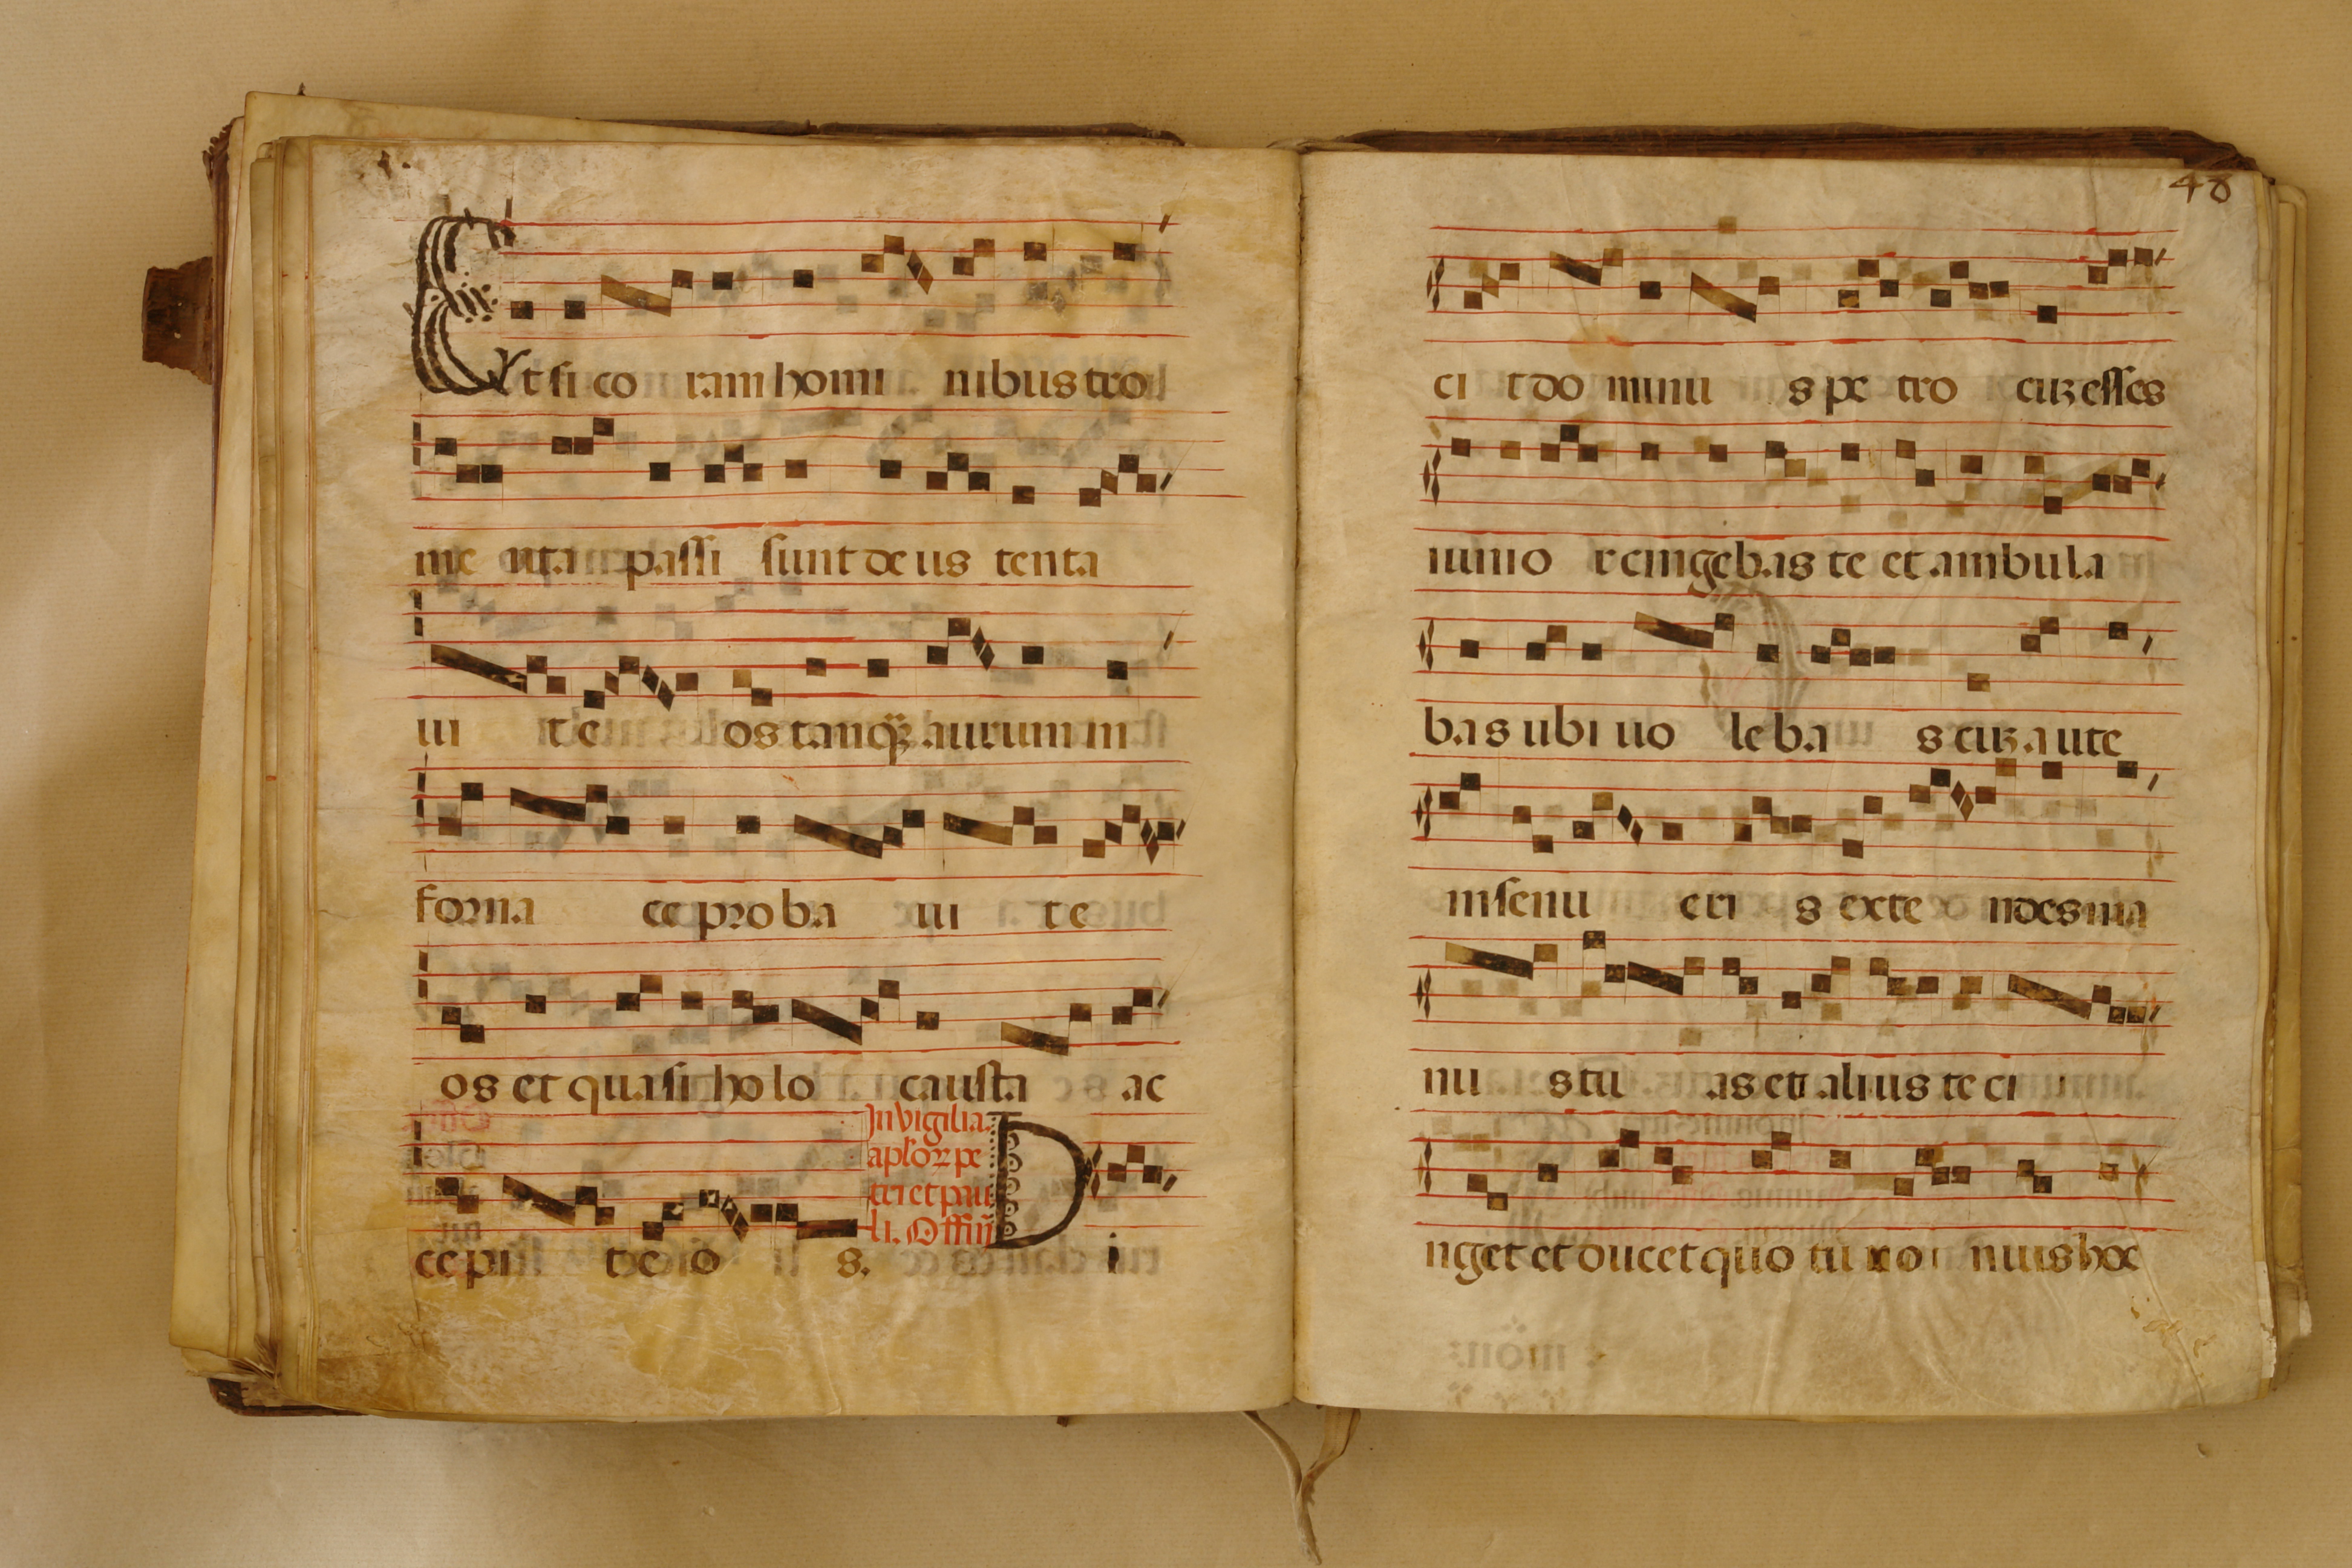 Et si co ram homi nibus tro
me nta passi sunt deus tenta
ui t e os tanq̃ȝ aurum in
forna ce proba ui t e
os et quasi holo causta ac
In vigilia
apl'oꝝ pe
tri et pau
li. Offiũ
cepi t e o s. D i
48
ci t do minu s pe tro cuȝ esses
iunio r cingebas te et ambula
bas ubi uo leba s cuȝ aute
m senu eri s exte ndes ma
nu s tu as et alius te ci
nget et ducet quo tu no n uis hoc